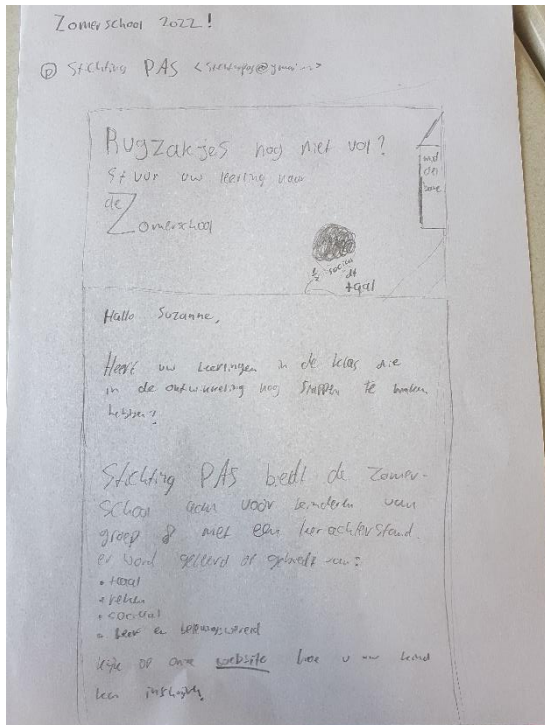 Zomerschool 2022!
Stichting PAS
Rugzakjes nog niet vol?
Stuur uw leerling naar
de
Zomerschool
taal
Hallo Suzanne,
Heeft uw leerlingen in de klas die
in de ontwikkeling nog stappen te maken
hebben?
Stichting PAS biedt de Zomer-
school aan voor kinderen van
groep 8 met een leerachterstand
er word geleerd of
• taal
• reken
• sociaal
kijk op onze website hoe u uw kind
kan